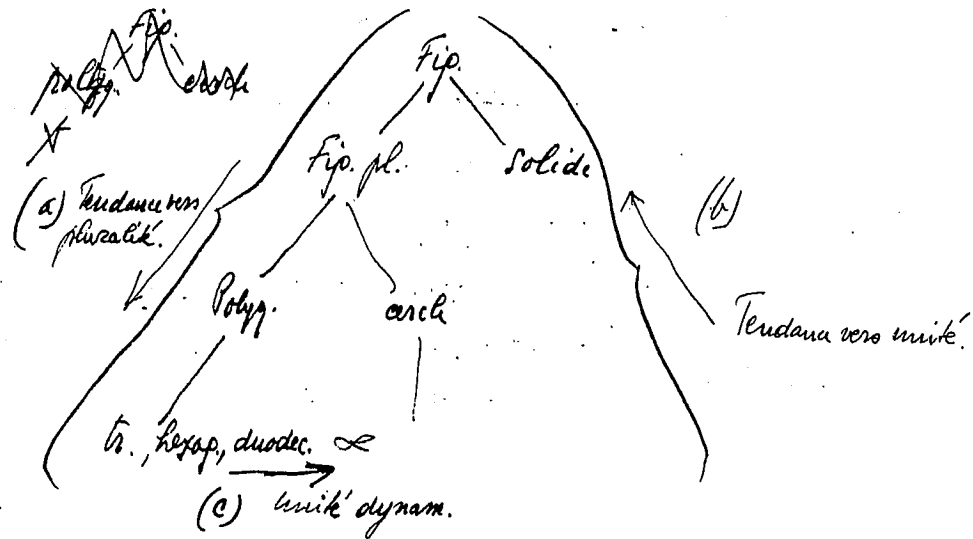 Fig.
polyg. cercle
Fig.
Fig. pl. solide
(a) Tendance vers
pluralité.
(b)
Polyg. cercle
Tendance vers unité.
tr., hexag., duodec. ∞
(c) unité dynam.